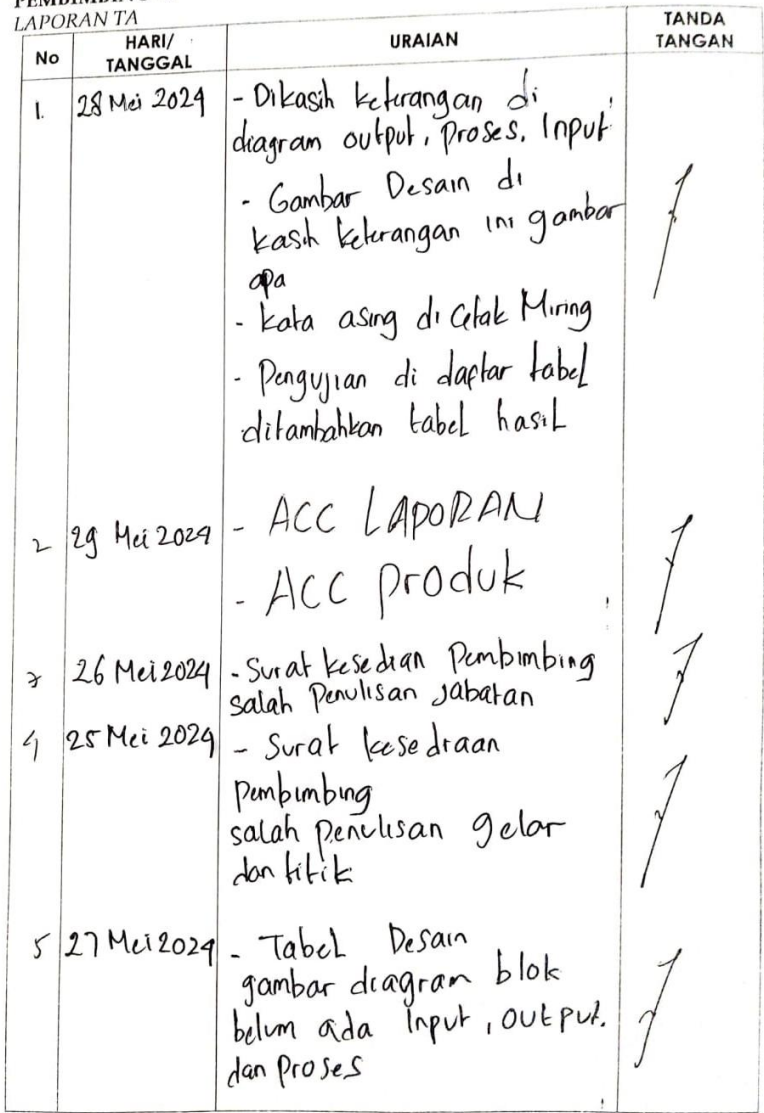 LAPORAN TA
No HARI/ TANGGAL URAIAN TANDA TANGAN
1. 28 Mei 2024 - Dikasih keterangan di
diagram output, Proses, Input
- Gambar Desain di
kasih keterangan ini gambar
apa
- kata asing di Cetak Miring
- Pengujian di daftar tabel
ditambahkan tabel hasil
2 29 Mei 2024 - ACC LAPORAN
- ACC produk
3 26 Mei 2024 - Surat kesedian Pembimbing
salah Penulisan Jabatan
4 25 Mei 2024 - Surat kesediaan
Pembimbing
salah penulisan gelar
dan titik
5 27 Mei 2024 - Tabel Desain
gambar diagram blok
belum ada Input, output.
dan Proses